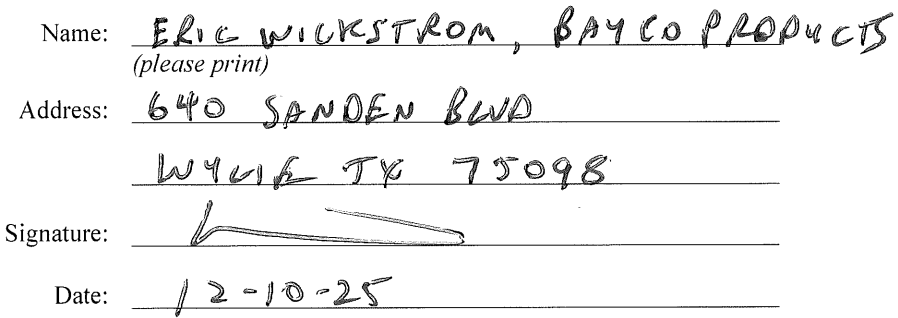 Name: ERIC WICKSTROM, BAYCO PRODUCTS
(please print)
Address: 640 SANDEN BLVD
WYLIE TX 75098
Signature:
Date: 12-10-25